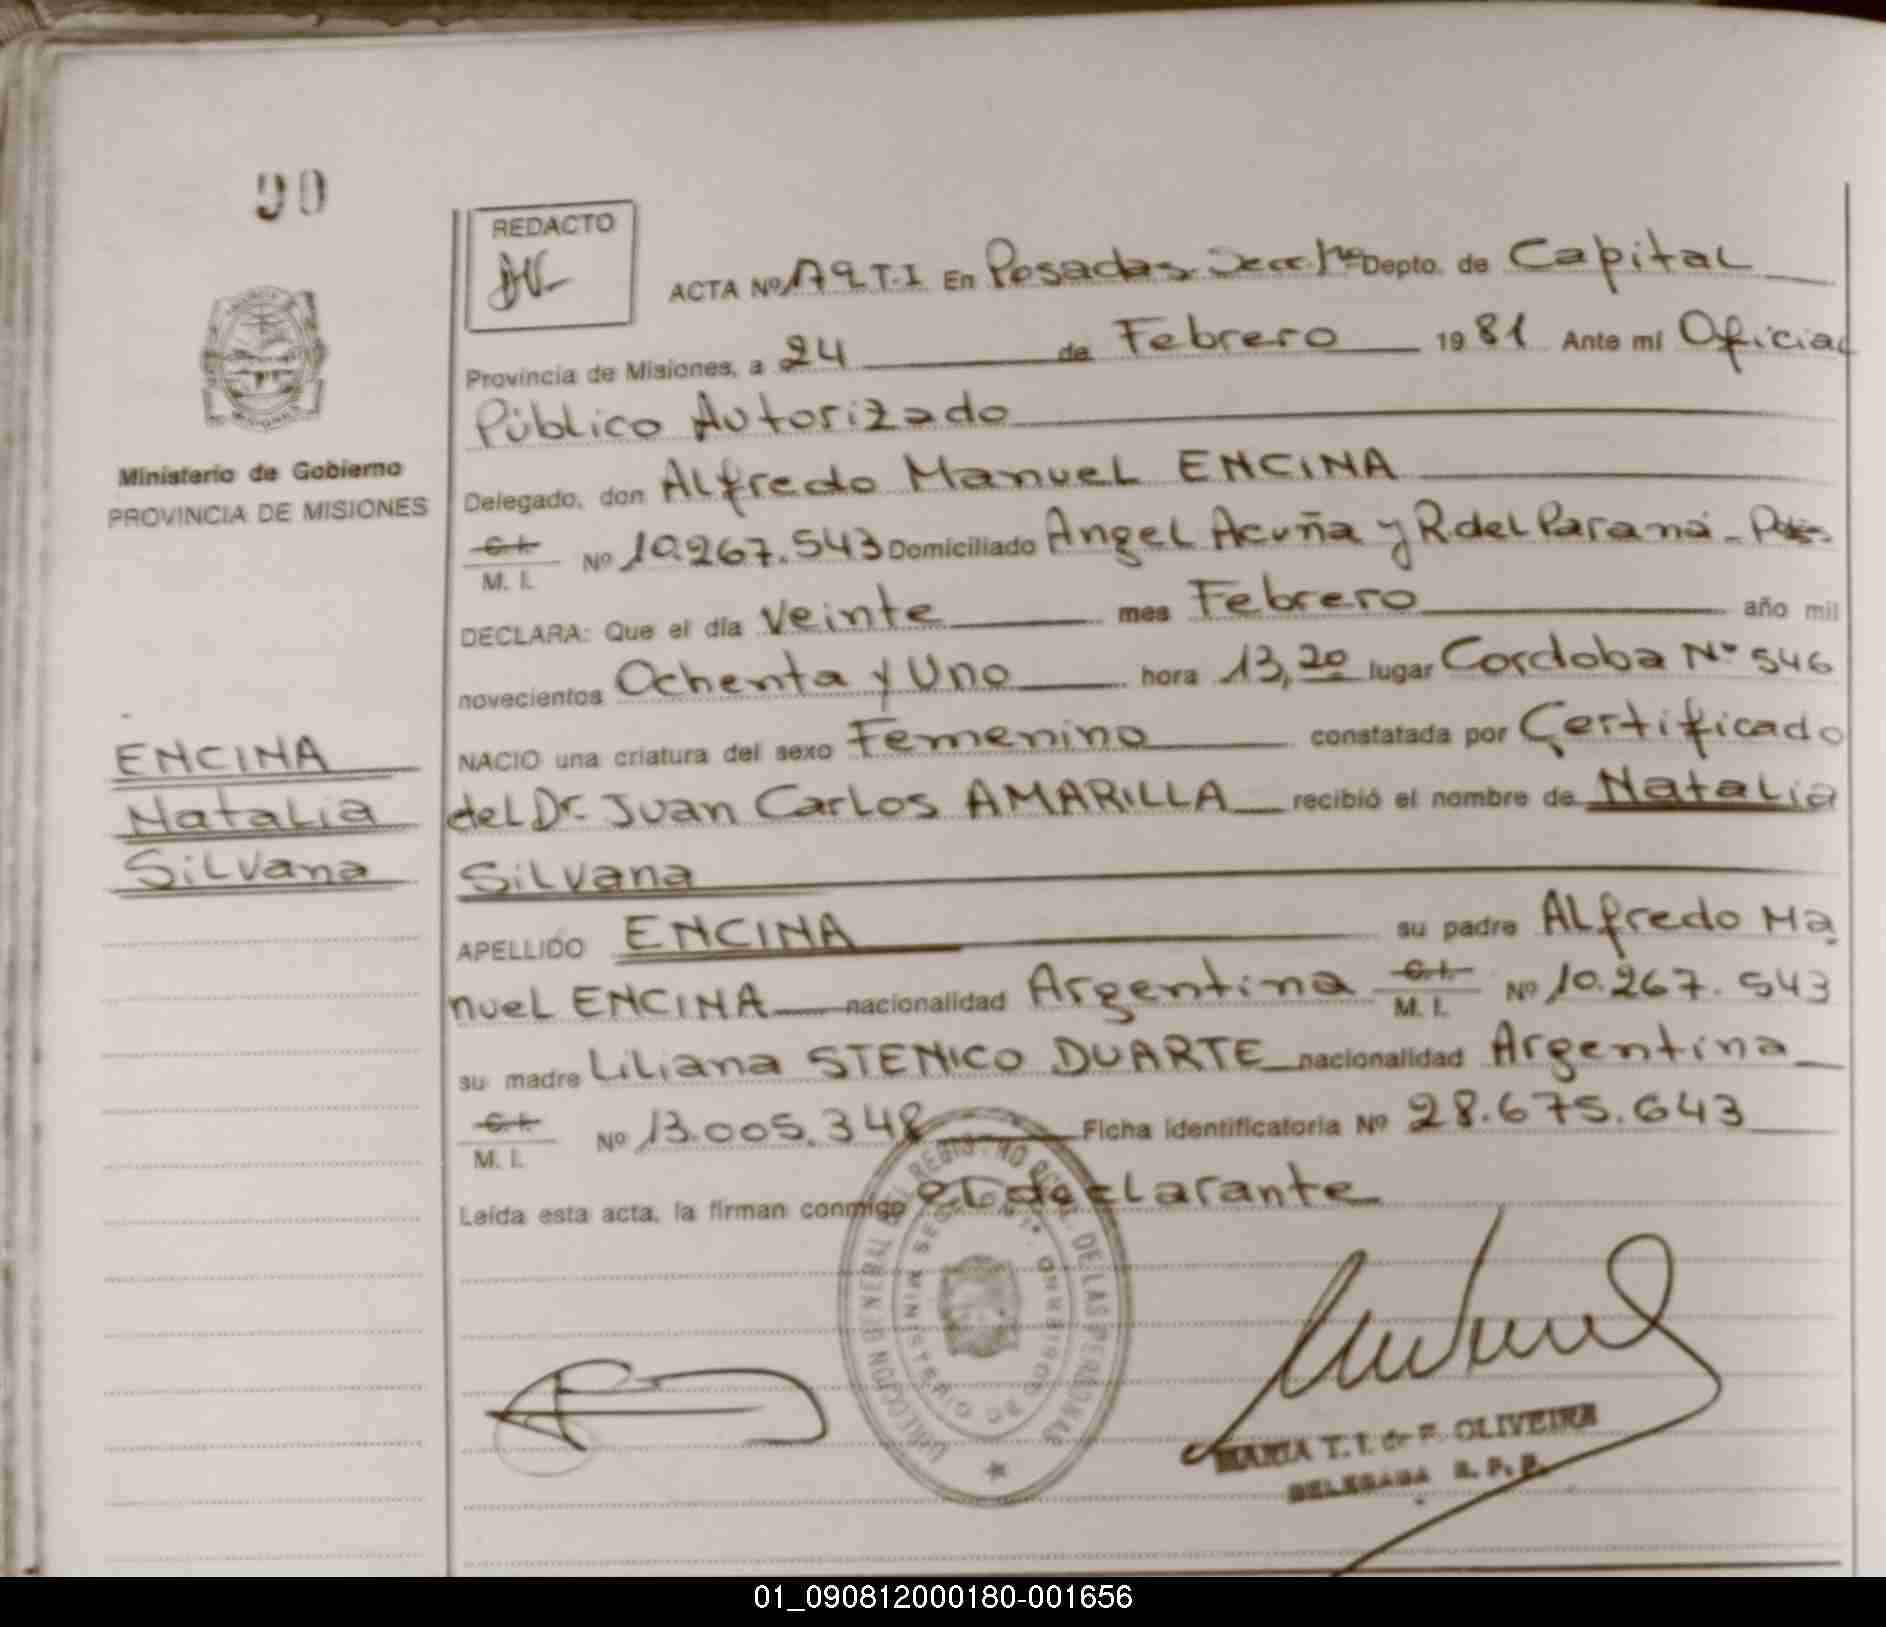 90
REDACTO
ACTA Nº 179 T.I En Posadas Secc 1ra Depto. de Capital
Provincia de Misiones, a 24 de Febrero 1981 Ante mi Oficial
Público Autorizado
Ministerio de Gobierno
PROVINCIA DE MISIONES
Delegado, don Alfredo Manuel ENCINA
C.I.
M. I. Nº 10.267.543 Domiciliado Angel Acuña y R. del Paraná - Pdas.
DECLARA: Que el día Veinte mes Febrero año mil
novecientos Ochenta y Uno hora 13,20 lugar Cordoba Nº 546
ENCINA
Natalia
Silvana
NACIO una criatura del sexo Femenino constatada por Certificado
del Dr. Juan Carlos AMARILLA recibió el nombre de Natalia
Silvana
APELLIDO ENCINA su padre Alfredo Ma
nuel ENCINA nacionalidad Argentina C.I.
M. I. Nº 10.267.543
su madre Liliana STENICO DUARTE nacionalidad Argentina
C.I.
M. I. Nº 13.005.348 Ficha identificatoria Nº 28.675.643
Leída esta acta, la firman conmigo el declarante
DIRECCION GENERAL DEL REGISTRO DE LAS PERSONAS
MINISTERIO DE GOBIERNO
MARIA T. T. de F. OLIVEIRA
DELEGADA R. P. P.
01_090812000180-001656